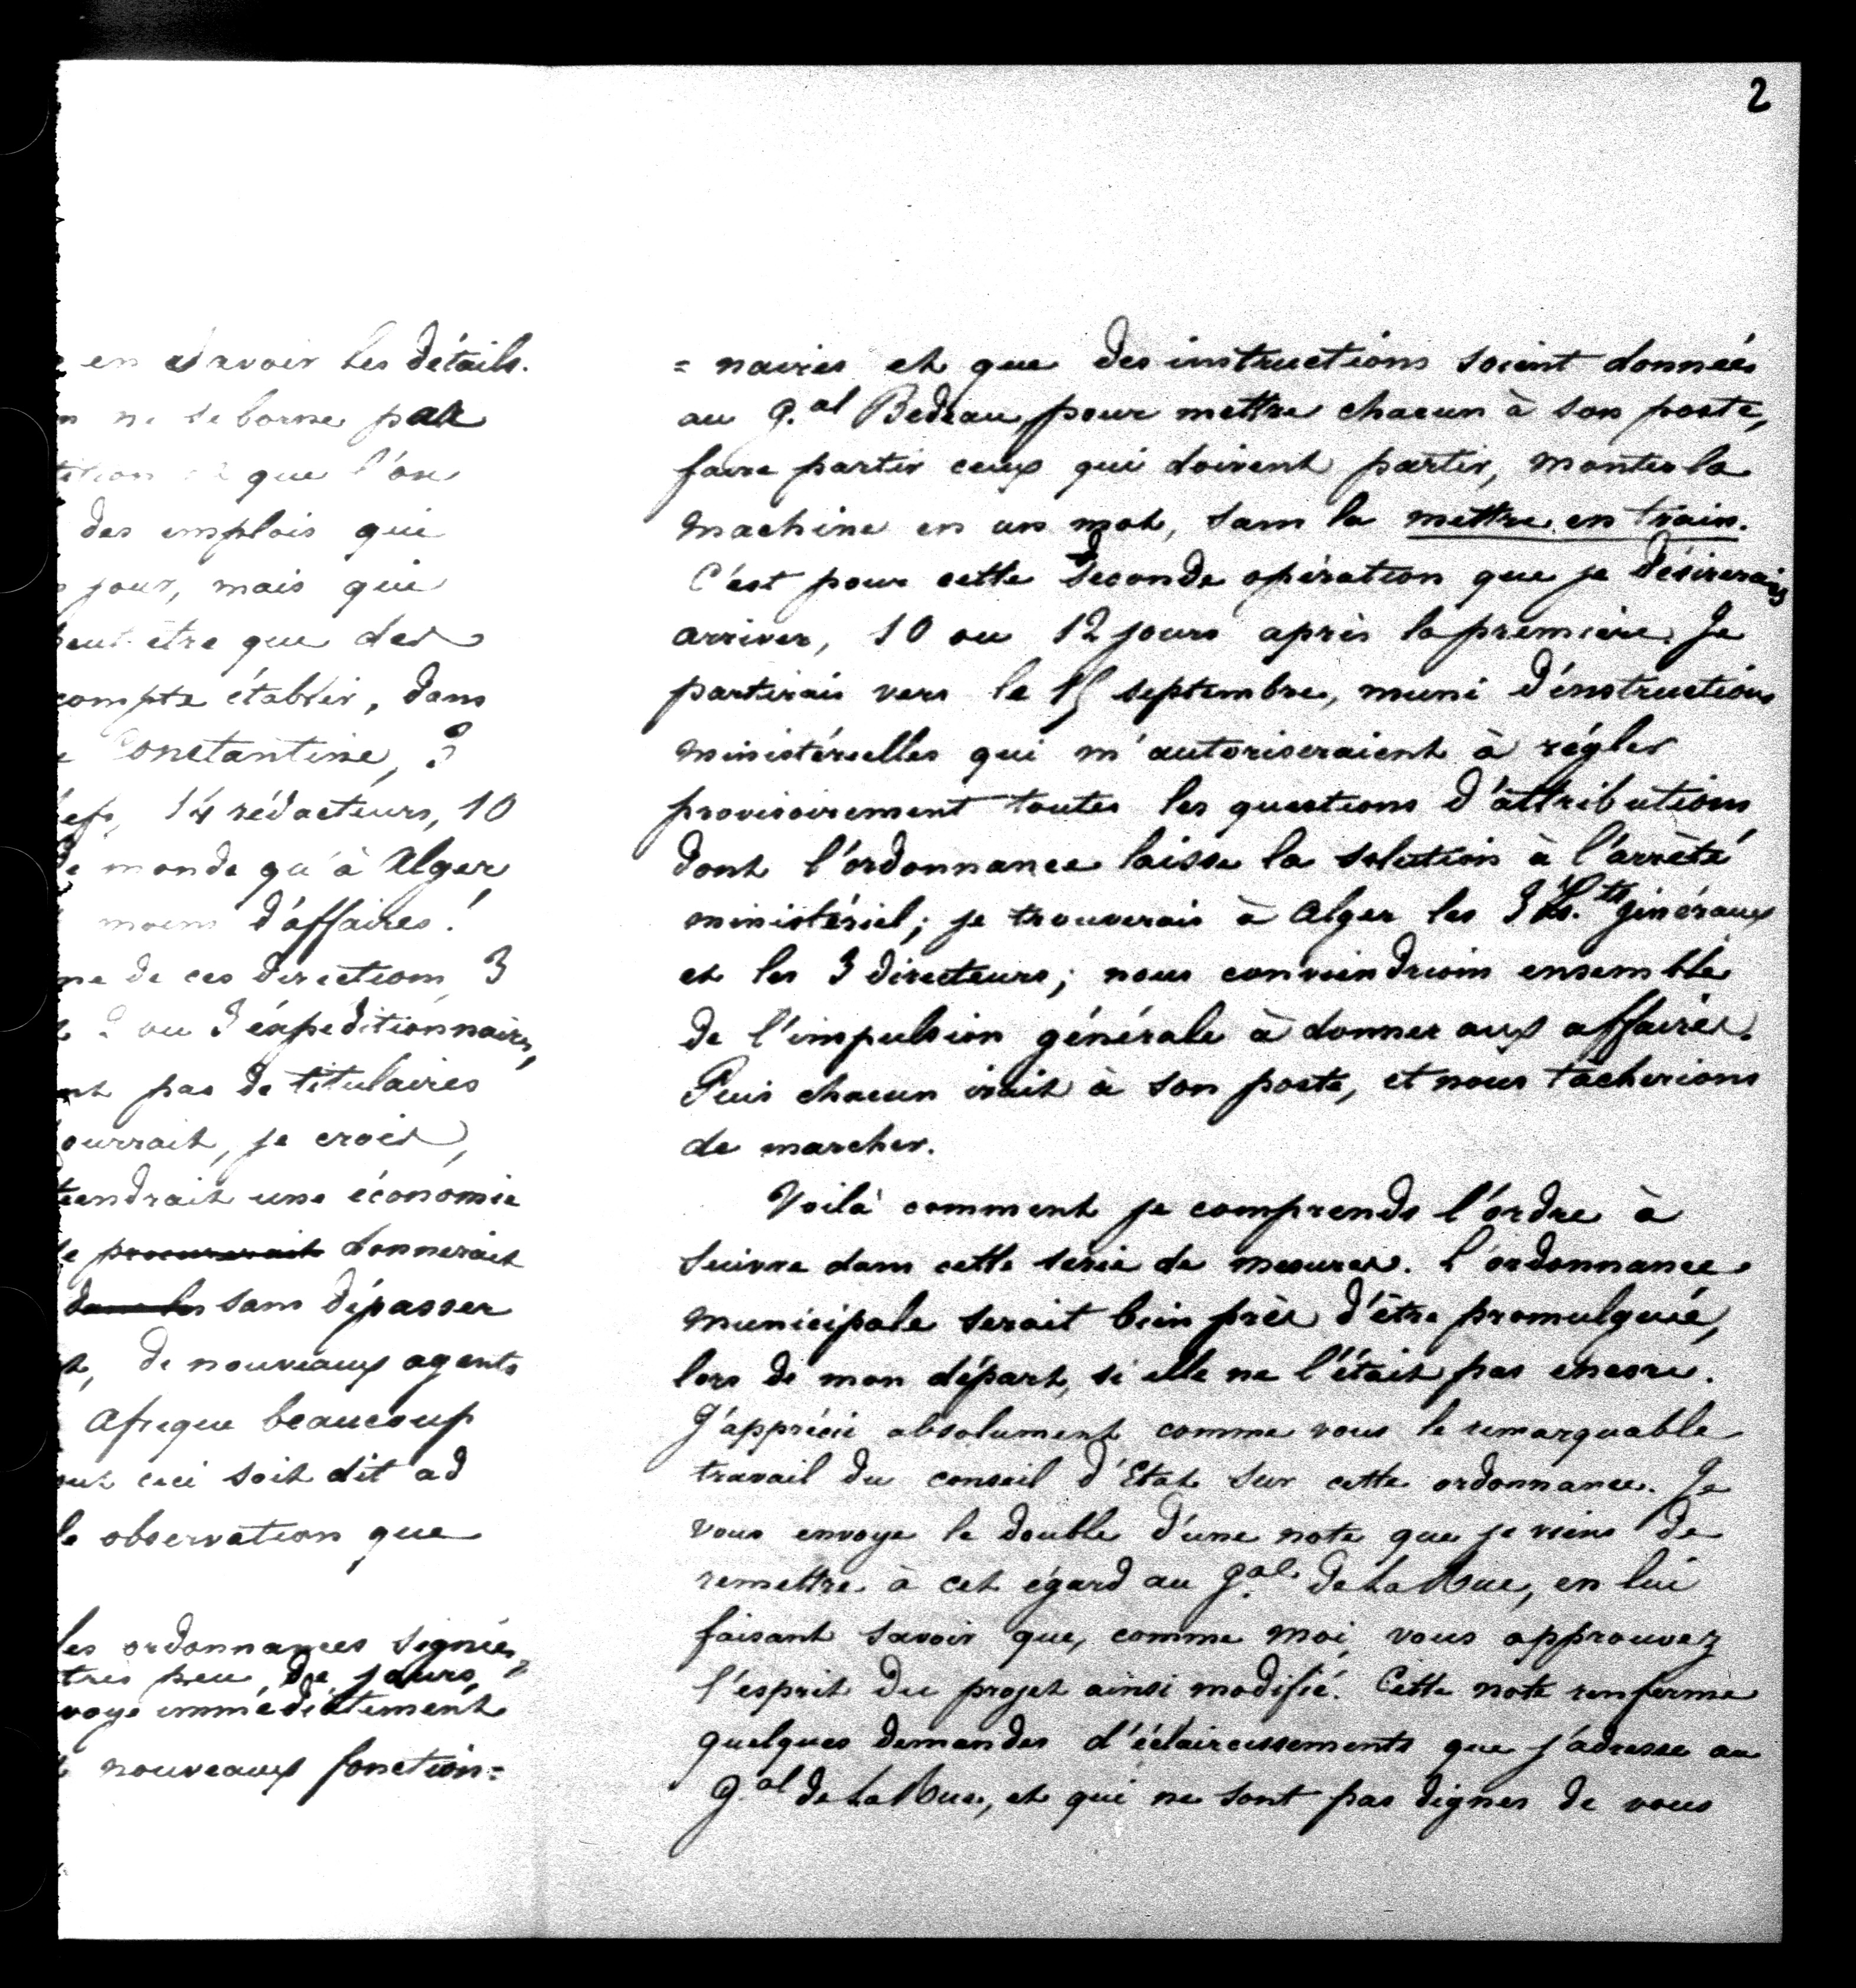 2
en savoir les détails.
ne se borne pas
que l'on
des emplois qui
jour, mais qui
peut-être que des
compte établir, dans
Constantine, 3
14 rédacteurs, 10
monde qu'à Alger
moins d'affaires!
de ces directions 3
ou 3 expéditionnaires,
pas de titulaires
je crois,
une économie
procurerait donnerait
dans les sans dépasser
de nouveaux agents
Afrique beaucoup
ceci soit dit ad
observation que
les ordonnances signées,
très peu de jours,
immédiatement
nouveaux fonction=
= naires et que des instructions soient données
au G.al Bedeau, pour mettre chacun à son poste,
faire partir ceux qui doivent partir, monter la
machine en un mot, sans la mettre en train.
C'est pour cette seconde opération que je désirerais
arriver, 10 ou 12 jours après la première. Je
partirais vers le 15 septembre, muni d'instructions
ministérielles qui m'autoriseraient à régler
provisoirement toutes les questions d'attributions
dont l'ordonnance laisse la solution à l'arrêté
ministériel; je trouverais à Alger les 3 Lts. généraux
et les 3 directeurs; nous conviendrions ensemble
de l'impulsion générale à donner aux affaires.
Puis chacun irait à son poste, et nous tâcherions
de marcher.
Voilà comment je comprends l'ordre à
suivre dans cette serie de mesures. L'ordonnance
municipale serait bien près d'être promulguée,
lors de mon départ, si elle ne l'était pas encore.
J'apprécie absolument comme vous le remarquable
travail du conseil d'Etat sur cette ordonnance. Je
vous envoye le double d'une note que je viens de
remettre à cet égard au G.al de La Rue, en lui
faisant savoir que, comme moi, vous approuvez
l'esprit du projet ainsi modifié. Cette note renferme
quelques demandes d'éclaircissements que j'adresse au
G.al de La Rue, et qui ne sont pas dignes de vous